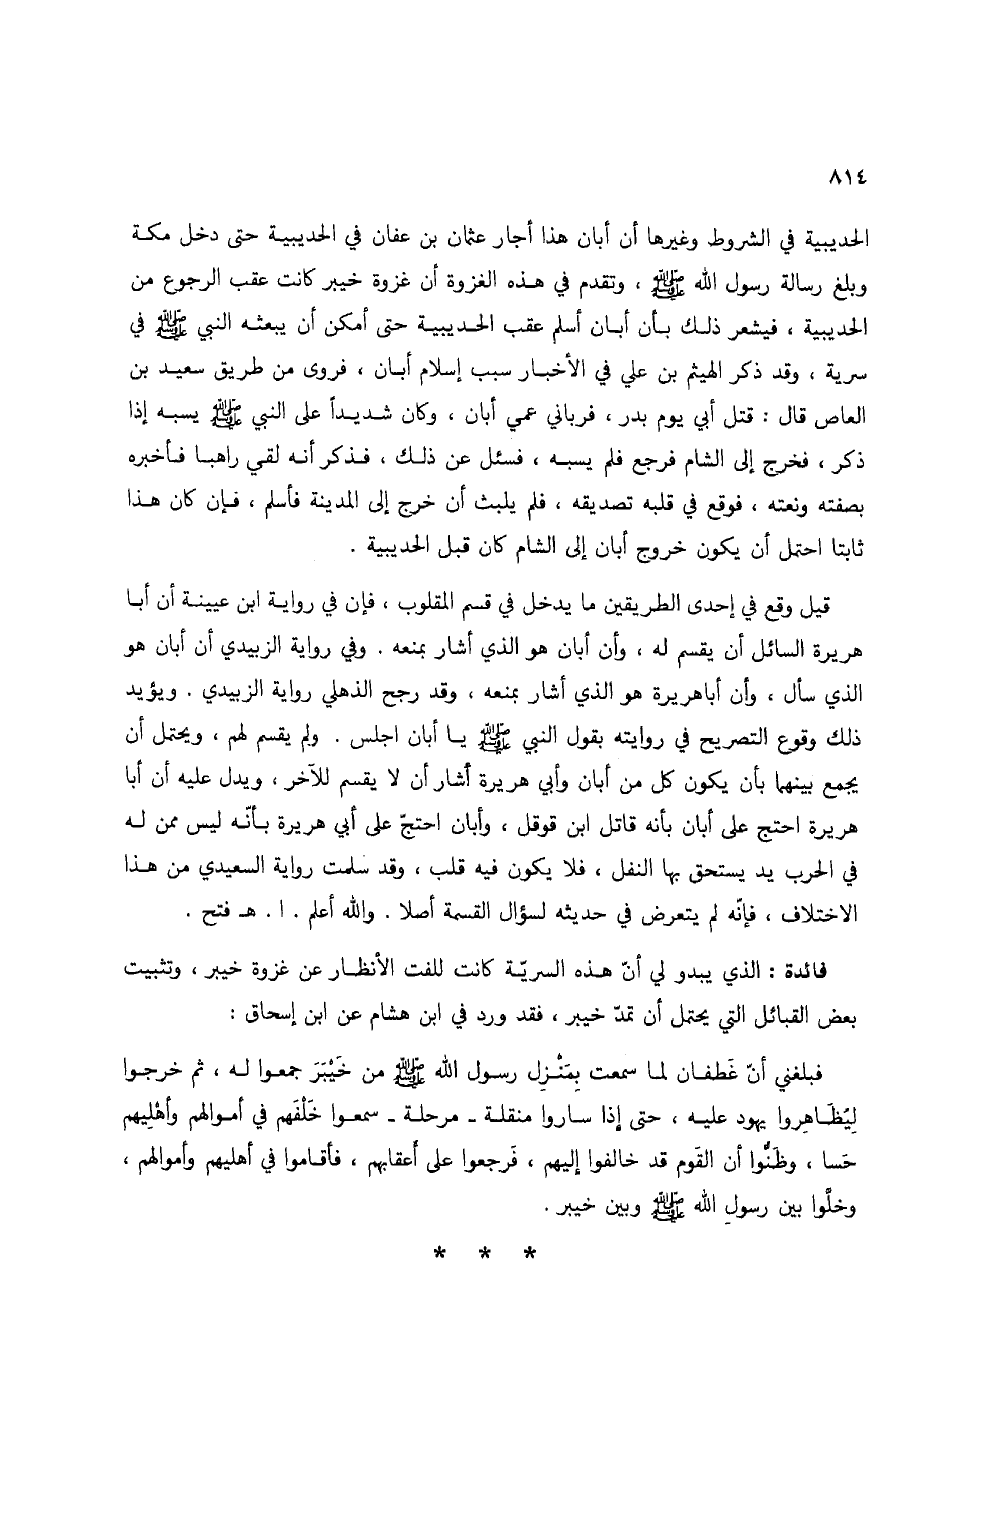 ٨١٤
الحديبية في الشروط وغيرها أن أبان هذا أجار عثمان بن عفان في الحديبية حتى دخل مكة
وبلغ رسالة رسول الله ﷺ ، وتقدم في هذه الغزوة أن غزوة خيبر كانت عقب الرجوع من
الحديبية ، فيشعر ذلك بأن أبان أسلم عقب الحديبية حتى أمكن أن يبعثه النبي ﷺ في
سرية ، وقد ذكر الهيثم بن علي في الأخبار سبب إسلام أبان ، فروى من طريق سعيد بن
العاص قال : قتل أبي يوم بدر ، فرباني عمي أبان ، وكان شديداً على النبي ﷺ يسبه إذا
ذكر ، فخرج إلى الشام فرجع فلم يسبه ، فسئل عن ذلك ، فذكر أنه لقي راهبا فأخبره
بصفته ونعته ، فوقع في قلبه تصديقه ، فلم يلبث أن خرج إلى المدينة فأسلم ، فإن كان هذا
ثابتا احتمل أن يكون خروج أبان إلى الشام كان قبل الحديبية .
قيل وقع في إحدى الطريقين ما يدخل في قسم المقلوب ، فإن في رواية ابن عيينة أن أبا
هريرة السائل أن يقسم له ، وأن أبان هو الذي أشار بمنعه . وفي رواية الزبيدي أن أبان هو
الذي سأل ، وأن أباهريرة هو الذي أشار بمنعه ، وقد رجح الذهلي رواية الزبيدي . ويؤيد
ذلك وقوع التصريح في روايته بقول النبي ﷺ يا أبان اجلس . ولم يقسم لهم ، ويحتمل أن
يجمع بينهما بأن يكون كل من أبان وأبي هريرة أشار أن لا يقسم للآخر ، ويدل عليه أن أبا
هريرة احتج على أبان بأنه قاتل ابن قوقل ، وأبان احتجّ على أبي هريرة بأنّه ليس ممن له
في الحرب يد يستحق بها النفل ، فلا يكون فيه قلب ، وقد سلمت رواية السعيدي من هذا
الاختلاف ، فإنّه لم يتعرض في حديثه لسؤال القسمة أصلا . والله أعلم . ا . هـ فتح .
فائدة : الذي يبدو لي أنّ هذه السريّة كانت للفت الأنظار عن غزوة خيبر ، وتثبيت
بعض القبائل التي يحتمل أن تمدّ خيبر ، فقد ورد في ابن هشام عن ابن إسحاق :
فبلغني أنّ غَطفان لما سمعت بِمَنْزِل رسول الله ﷺ من خَيْبَرَ جمعوا له ، ثم خرجوا
لِيُظَاهِروا يهود عليه ، حتى إذا ساروا منقلة ـ مرحلة ـ سمعوا خَلْفَهم في أموالهم وأهْلِيهم
حَسا ، وظَنُّوا أن القَوم قد خالفوا إليهم ، فَرجعوا على أعقابهم ، فأقاموا في أهليهم وأموالهم ،
وخلَّوا بين رسولِ الله ﷺ وبين خيبر .
* * *